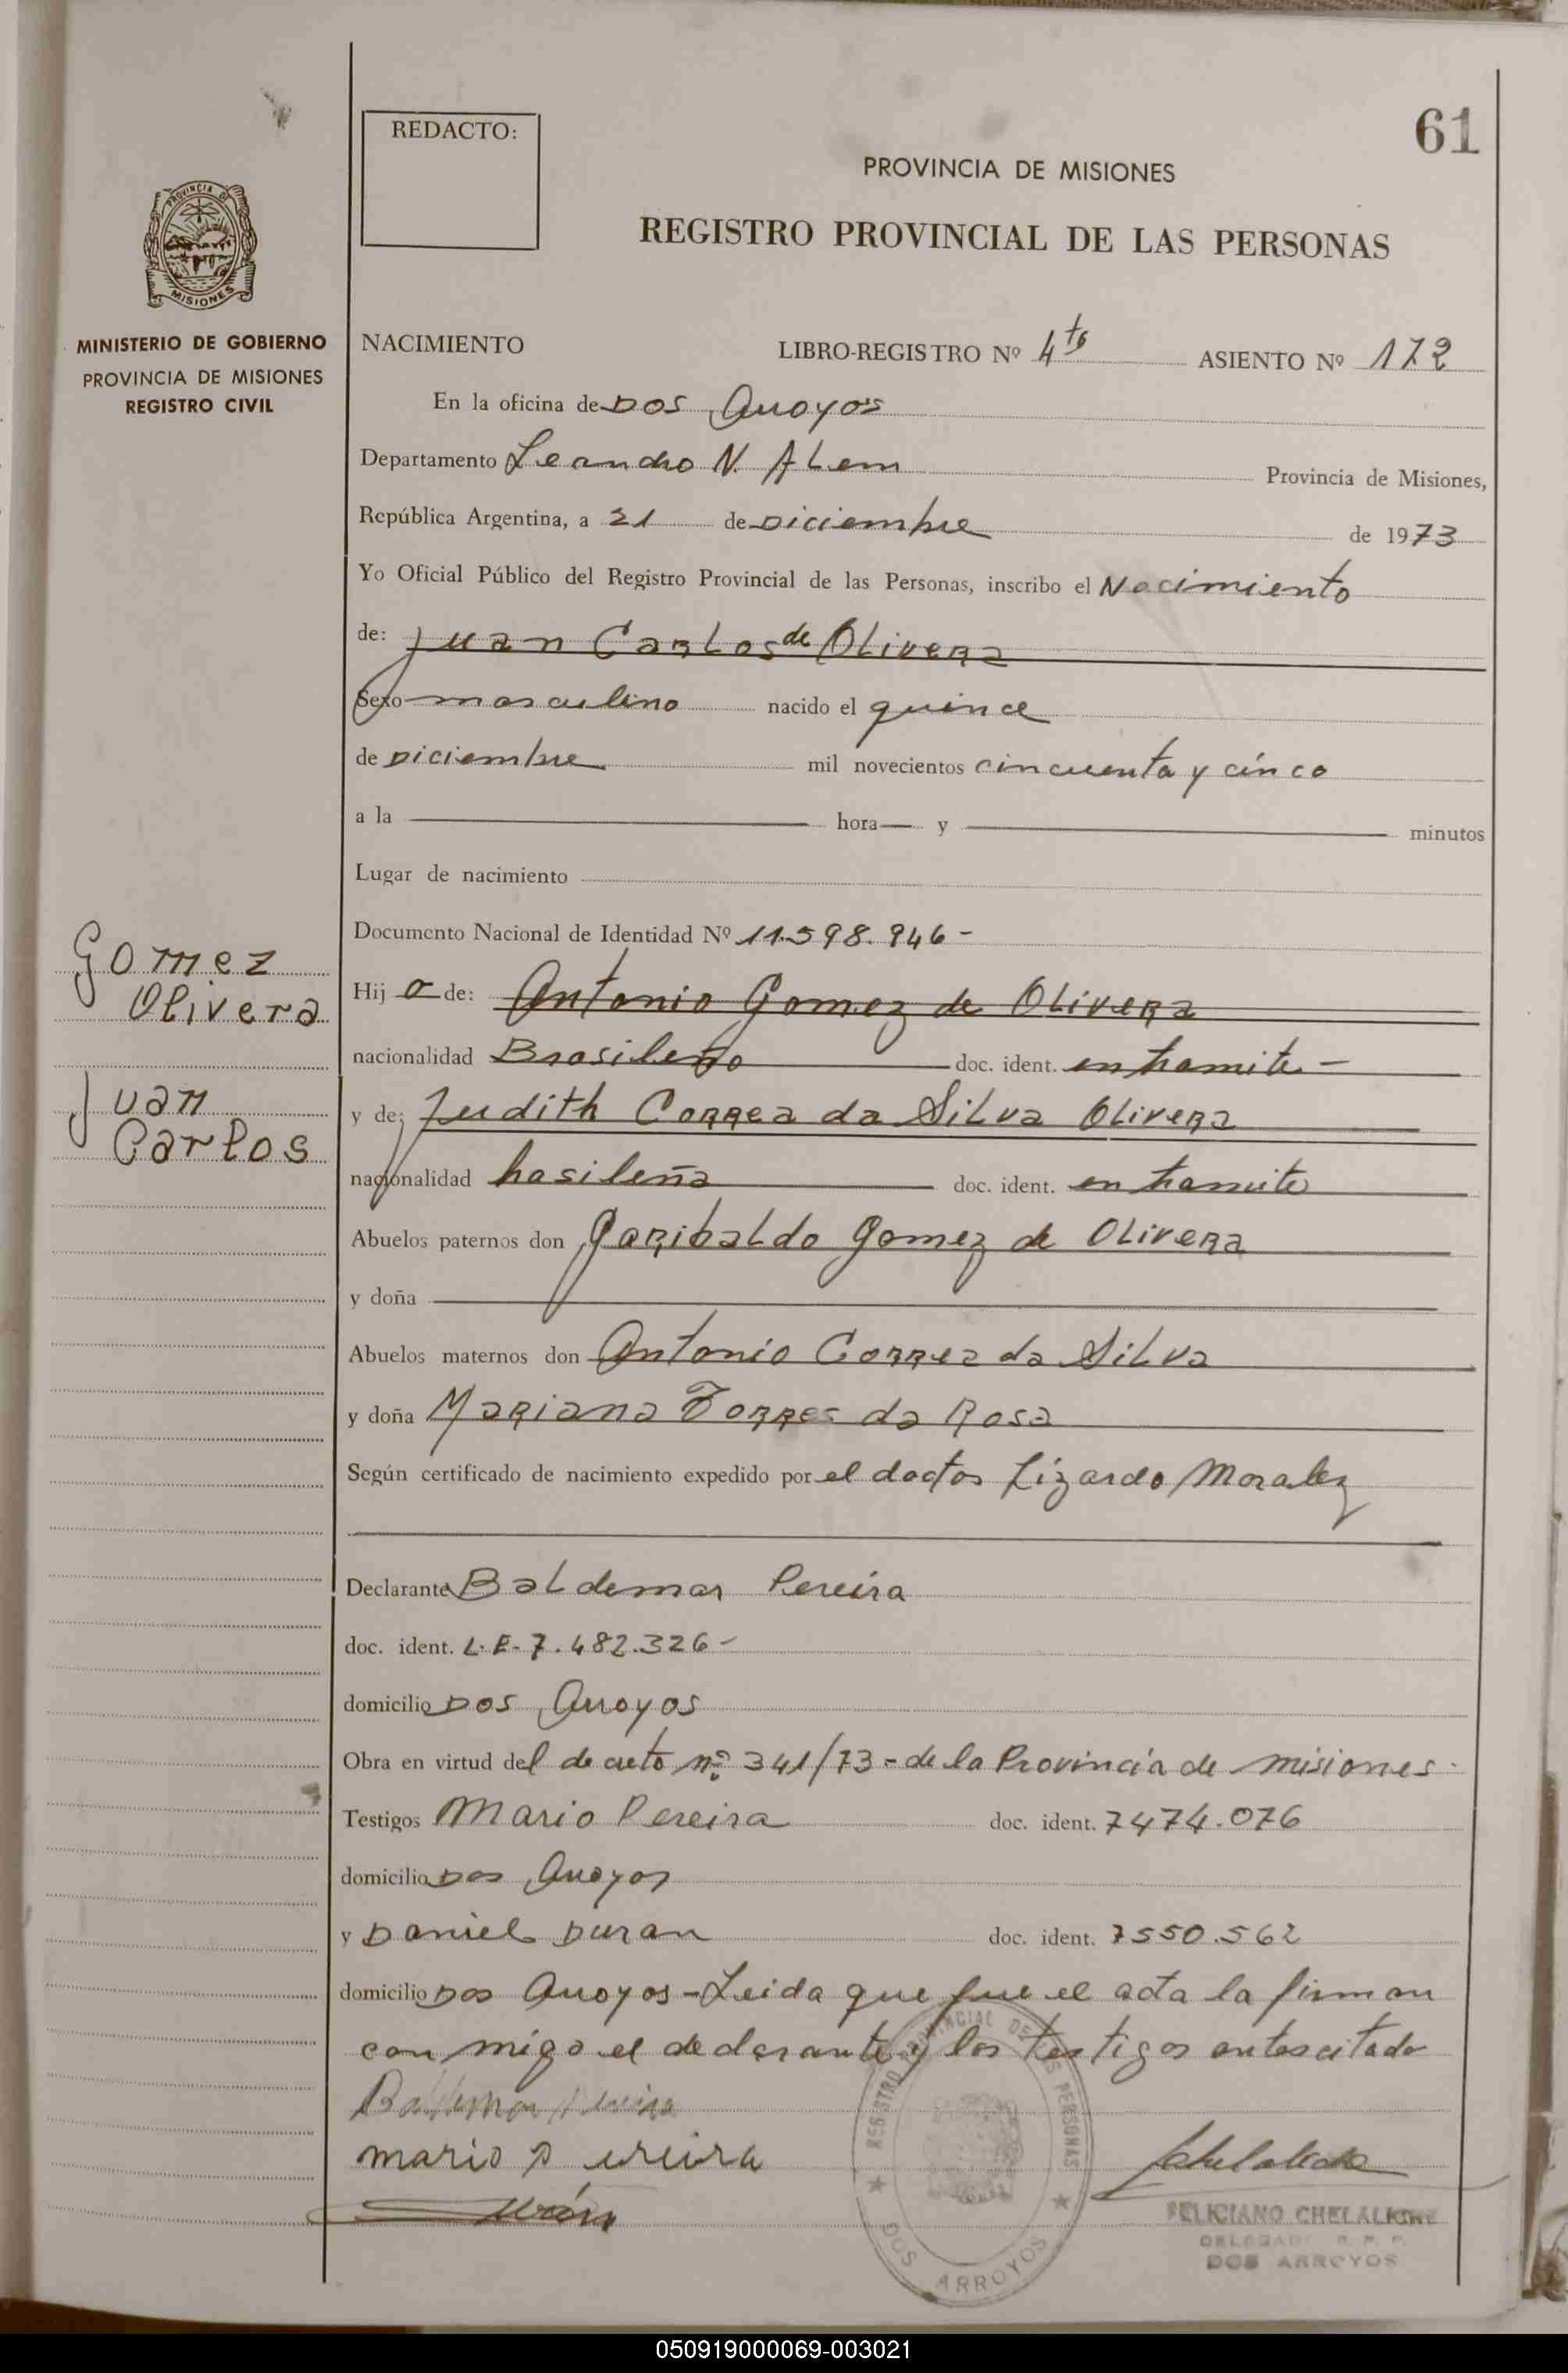 61
REDACTO:
PROVINCIA DE MISIONES
REGISTRO PROVINCIAL DE LAS PERSONAS
PROVINCIA DE
MISIONES
MINISTERIO DE GOBIERNO
PROVINCIA DE MISIONES
REGISTRO CIVIL
NACIMIENTO LIBRO-REGISTRO Nº 4to ASIENTO Nº 172
En la oficina de Dos Arroyos
Departamento Leandro N. Alem Provincia de Misiones,
República Argentina, a 21 de Diciembre de 1973
Yo Oficial Público del Registro Provincial de las Personas, inscribo el Nacimiento
de: Juan Carlos de Olivera
Sexo masculino nacido el quince
de Diciembre mil novecientos cincuenta y cinco
a la hora y minutos
Lugar de nacimiento
Documento Nacional de Identidad Nº 11.598.946 -
Gomez
Olivera
Juan
Carlos
Hij o de: Antonio Gomez de Olivera
nacionalidad Brasileño doc. ident. en tramite -
y de: Judith Correa da Silva Olivera
nacionalidad brasileña doc. ident. en tramite
Abuelos paternos don Garibaldo Gomez de Olivera
y doña
Abuelos maternos don Antonio Correa da Silva
y doña Mariana Torres da Rosa
Según certificado de nacimiento expedido por el doctor Lizardo Moralez
Declarante Baldemar Pereira
doc. ident. L.E- 7.482.326 -
domicilio Dos Arroyos
Obra en virtud del decreto nº 341/73 - de la Provincia de Misiones -
Testigos Mario Pereira doc. ident. 7474.076
domicilio Dos Arroyos
y Daniel Duran doc. ident. 7550.562
domicilio Dos Arroyos - Leida que fue el acta la firman
con migo el declarante y los testigos antescitado
Baldemar Pereira
mario Pereira
REGISTRO PROVINCIAL DE LAS PERSONAS
DOS ARROYOS
FELICIANO CHELALICHE
DELEGADO R. P. P.
DOS ARROYOS
050919000069-003021